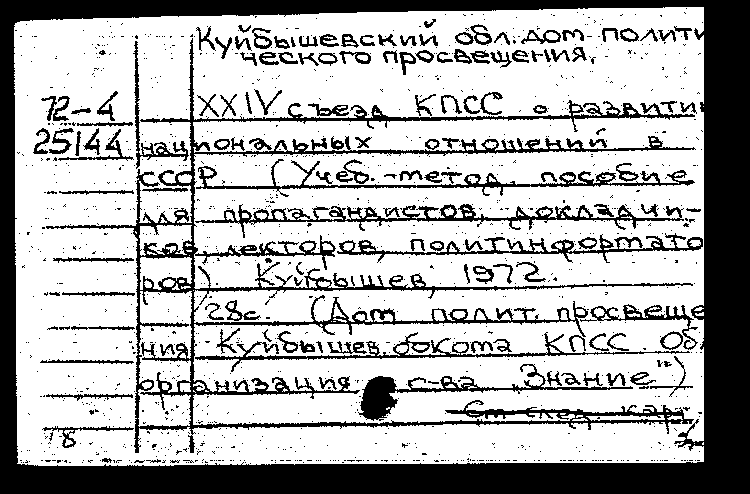 Куйбышевский обл. дом полити
ческого просвещения.
72-4 XXIV съезд КПСС о развитии
25144 национальных отношений в
СССР. (Учеб.-метод. пособие
для пропагандистов, докладчи-
ков, лекторов, политинформато
ров). Куйбышев, 1972.
28с. (Дом полит. просвеще
ния Куйбышев. обкома КПСС. Об
организация о-ва „Знание")
См след. кар
18